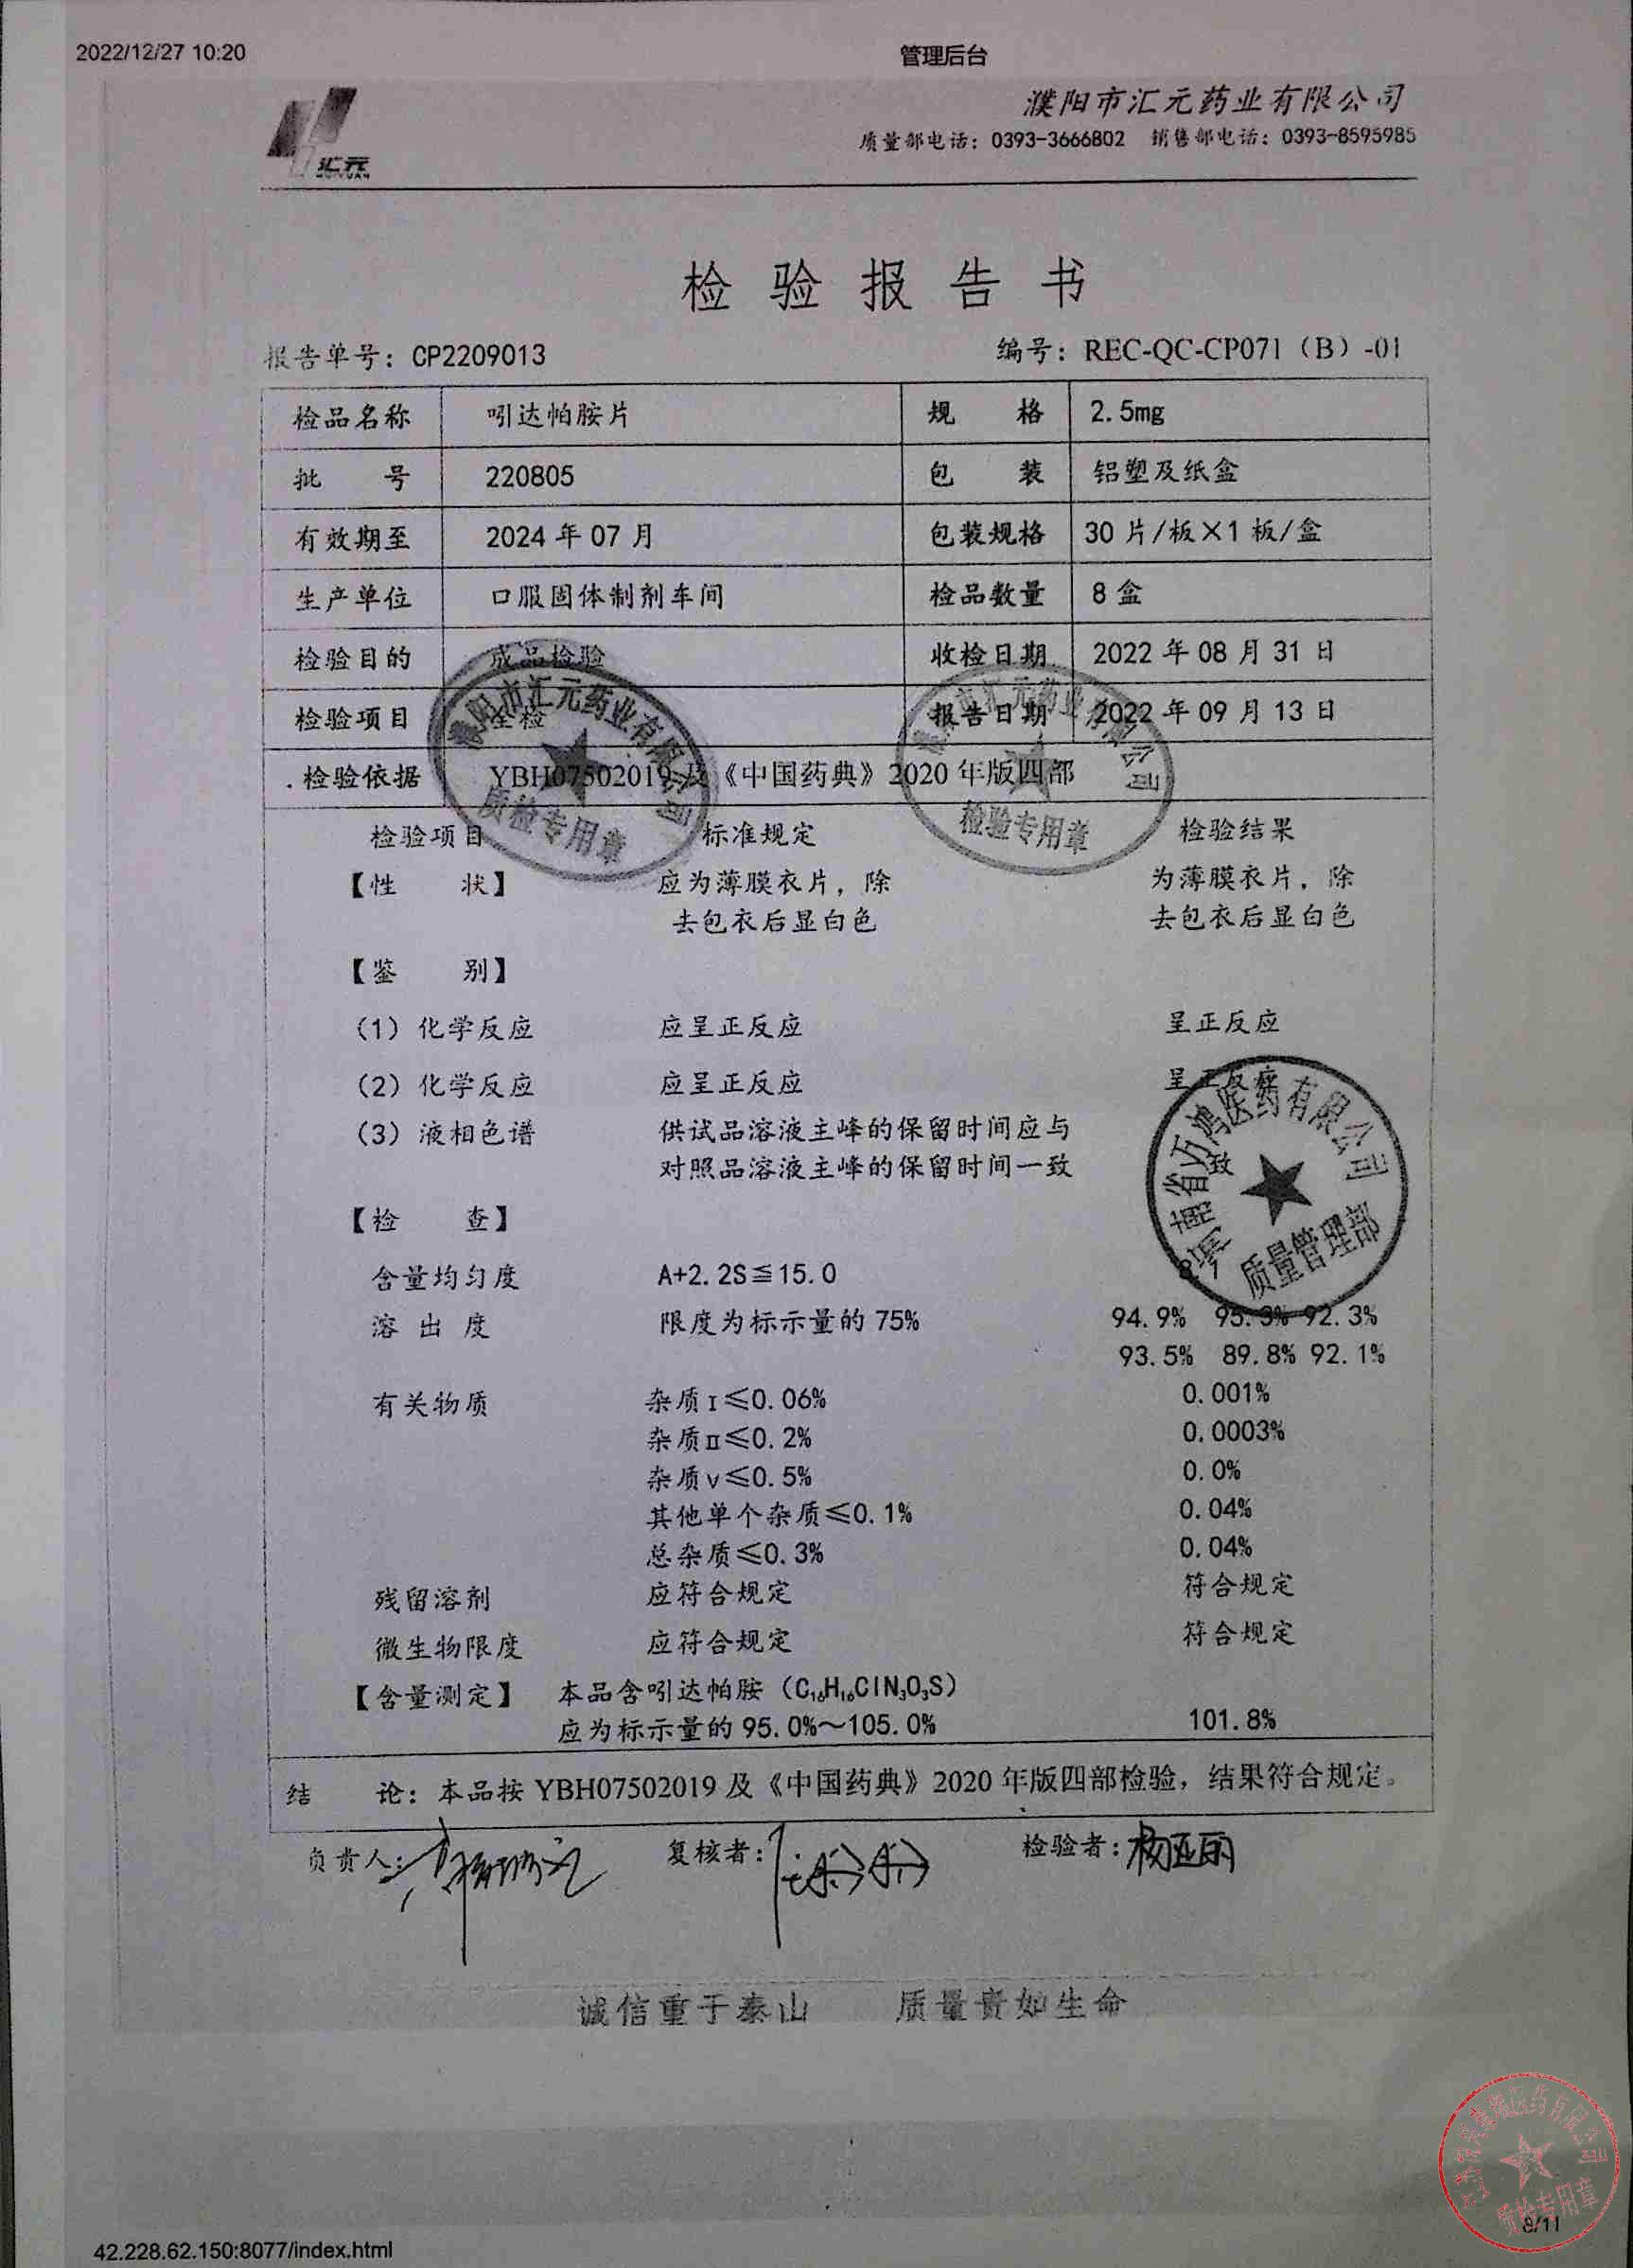 2022/12/27 10:20 管理后台
汇元
HUIYUAN
濮阳市汇元药业有限公司
质量部电话：0393-3666802 销售部电话：0393-8595985
检验报告书
报告单号：CP2209013 编号：REC-QC-CP071（B）-01
检品名称 吲达帕胺片 规 格 2.5mg
批 号 220805 包 装 铝塑及纸盒
有效期至 2024 年 07 月 包装规格 30 片/板×1 板/盒
生产单位 口服固体制剂车间 检品数量 8 盒
检验目的 成品检验 收检日期 2022 年 08 月 31 日
检验项目 全检 报告日期 2022 年 09 月 13 日
检验依据 YBH07502019 及《中国药典》2020 年版四部
濮阳市汇元药业有限公司
质检专用章
濮阳市汇元药业有限公司
检验专用章
检验项目 标准规定 检验结果
【性 状】 应为薄膜衣片，除 为薄膜衣片，除
去包衣后显白色 去包衣后显白色
【鉴 别】
（1）化学反应 应呈正反应 呈正反应
（2）化学反应 应呈正反应 呈正反应
（3）液相色谱 供试品溶液主峰的保留时间应与
对照品溶液主峰的保留时间一致 致
河南省万鸿医药有限公司
质量管理部
【检 查】
含量均匀度 A+2.2S≦15.0
溶 出 度 限度为标示量的 75% 94.9% 95.3% 92.3%
93.5% 89.8% 92.1%
有关物质 杂质I≤0.06% 0.001%
杂质II≤0.2% 0.0003%
杂质V≤0.5% 0.0%
其他单个杂质≤0.1% 0.04%
总杂质≤0.3% 0.04%
残留溶剂 应符合规定 符合规定
微生物限度 应符合规定 符合规定
【含量测定】 本品含吲达帕胺（C₁₆H₁₆ClN₃O₃S）
应为标示量的 95.0%～105.0% 101.8%
结 论：本品按 YBH07502019 及《中国药典》2020 年版四部检验，结果符合规定。
负责人： 复核者： 检验者：杨亚丽
诚信重于泰山 质量贵如生命
医药有限公司
质检专用章
8/11
42.228.62.150:8077/index.html